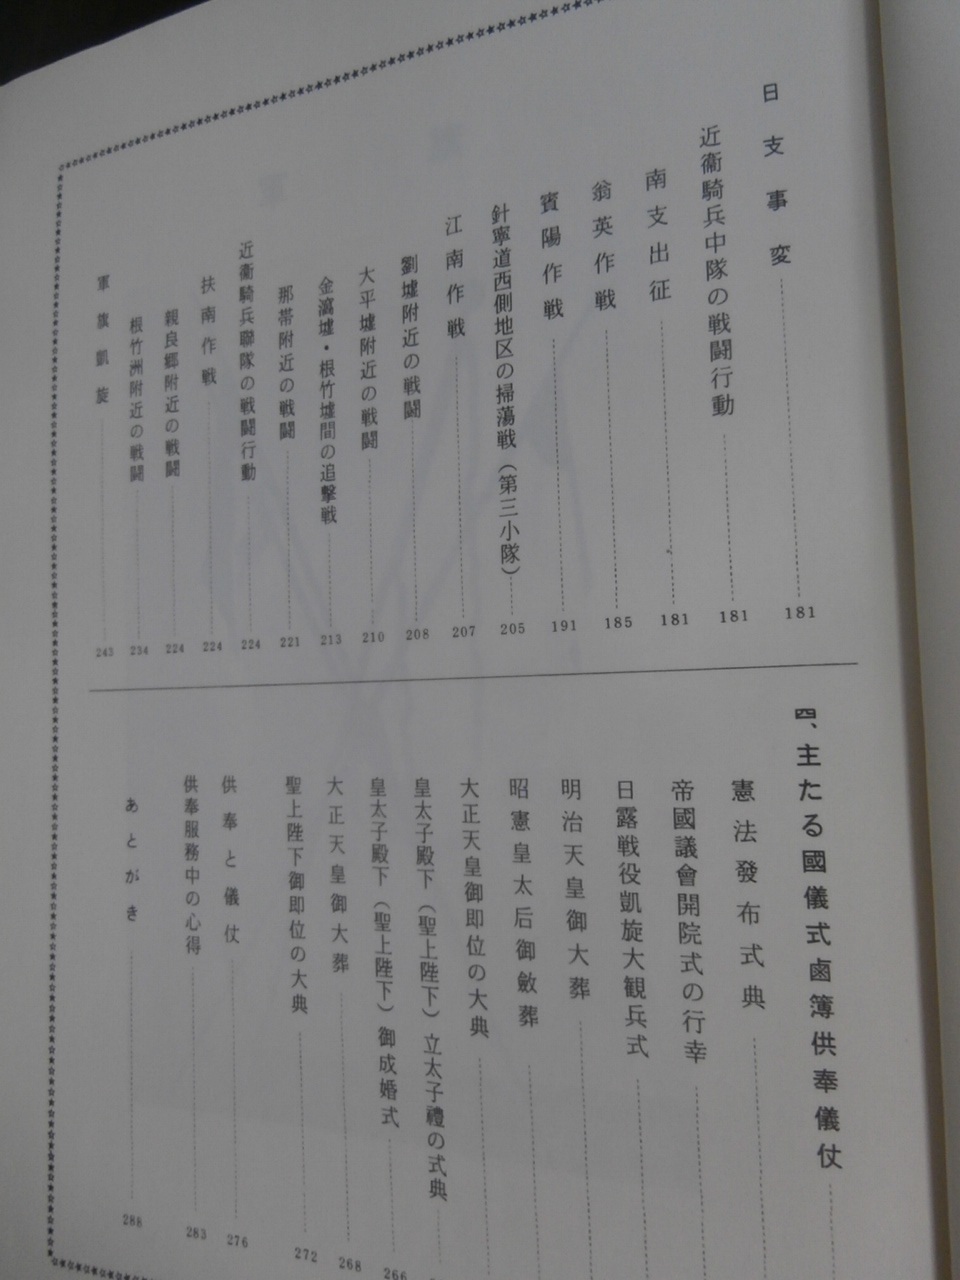 日支事変 181
近衞騎兵中隊の戦闘行動 181
南支出征 181
翁英作戦 185
賓陽作戦 191
針寧道西側地区の掃蕩戦（第三小隊） 205
江南作戦 207
劉墟附近の戦闘 208
大平墟附近の戦闘 210
金瀉墟・根竹墟間の追撃戦 213
那帯附近の戦闘 221
近衞騎兵聯隊の戦闘行動 224
扶南作戦 224
親良郷附近の戦闘 224
根竹洲附近の戦闘 234
軍旗凱旋 243
四、主たる國儀式鹵簿供奉儀仗
憲法發布式典
帝國議會開院式の行幸
日露戦役凱旋大観兵式
明治天皇御大葬
昭憲皇太后御斂葬
大正天皇御即位の大典
皇太子殿下（聖上陛下）立太子禮の式典
皇太子殿下（聖上陛下）御成婚式 266
大正天皇御大葬 268
聖上陛下御即位の大典 272
供奉と儀仗 276
供奉服務中の心得 283
あとがき 288